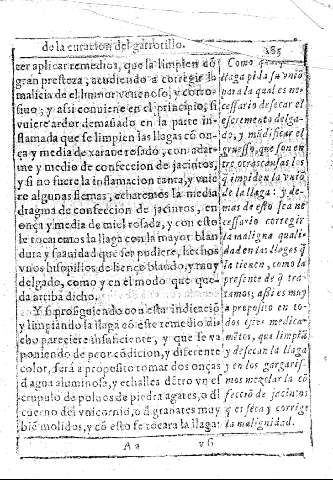 de la curacion del garrotillo. 185
zer aplicar remedios, que la limpien cõ
gran presteza, acudiendo a corregir la
malicia de el humor venenoso, y corro-
siuo; y assi conuiene en el principio, si
vuiere ardor demasiado en la parte in-
flamada que se limpien las llagas cõ on-
ça y media de xaraue rosado, con adar-
me y medio de confeccion de jacintos,
y si no fuere la inflamacion tanta, y vuie
re algunas flemas, echaremos la media
dragma de confeccion de jacintos, en
onça y media de miel rosada, y con esto
le tocaremos la llaga con la mayor blan
dura y suauidad que ser pudiere, hechos
vnos hisopillos de lienço blando, y muy
delgado, como y en el modo que que-
da arriba dicho.
Y si prosiguiendo con esta indicaciõ
y limpiãndo la llaga cõ este remedio di-
cho pareciere insuficiente, y que se va
poniendo de peor cõdicion, y diferente
color, serà a proposito tomar dos onças
d agua aluminosa, y echalles dẽtro vn es
crupulo de poluos de piedra agates, o dl
cuerno del vnicornio, o d granates muy
biẽ molidos, y cõ esto se tocara la llaga:
Como
llaga pida su vniõ
para la qual es ne
cessario desecar el
escremento delga-
do, y mũdificar el
gruesso, que son en
tre otras causas los
q̃ impiden la vniõ
de la llaga: y de-
mas de esto sea ne
cessario corregir
la maligna quali-
dad en las llagas q̃
la tienen, como la
presente de q̃ tra-
tamos, assi es muy
a proposito en to-
dos estos medica-
mẽtos, que limpiã
y desecan la llaga
y en los gargaris-
mos mezclar la cõ
fecciõ de jacintos
q es seca y corrige
la malignidad.
Aa vſi